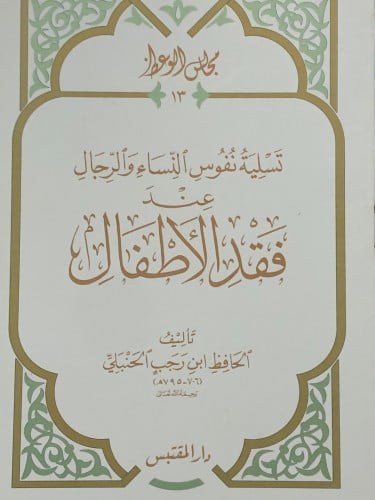 مجالس الوعظ
١٣
تَسْلِيَةُ نُفُوسِ النِّسَاءِ وَالرِّجَالِ
عِنْدَ
فَقْدِ الأَطْفَالِ
تَأْلِيْفُ
الحَافِظِ ابنِ رَجَبٍ الحَنْبَلِيِّ
(٧٠٦-٧٩٥هـ)
رحمه الله تعالى
دار المقتبس